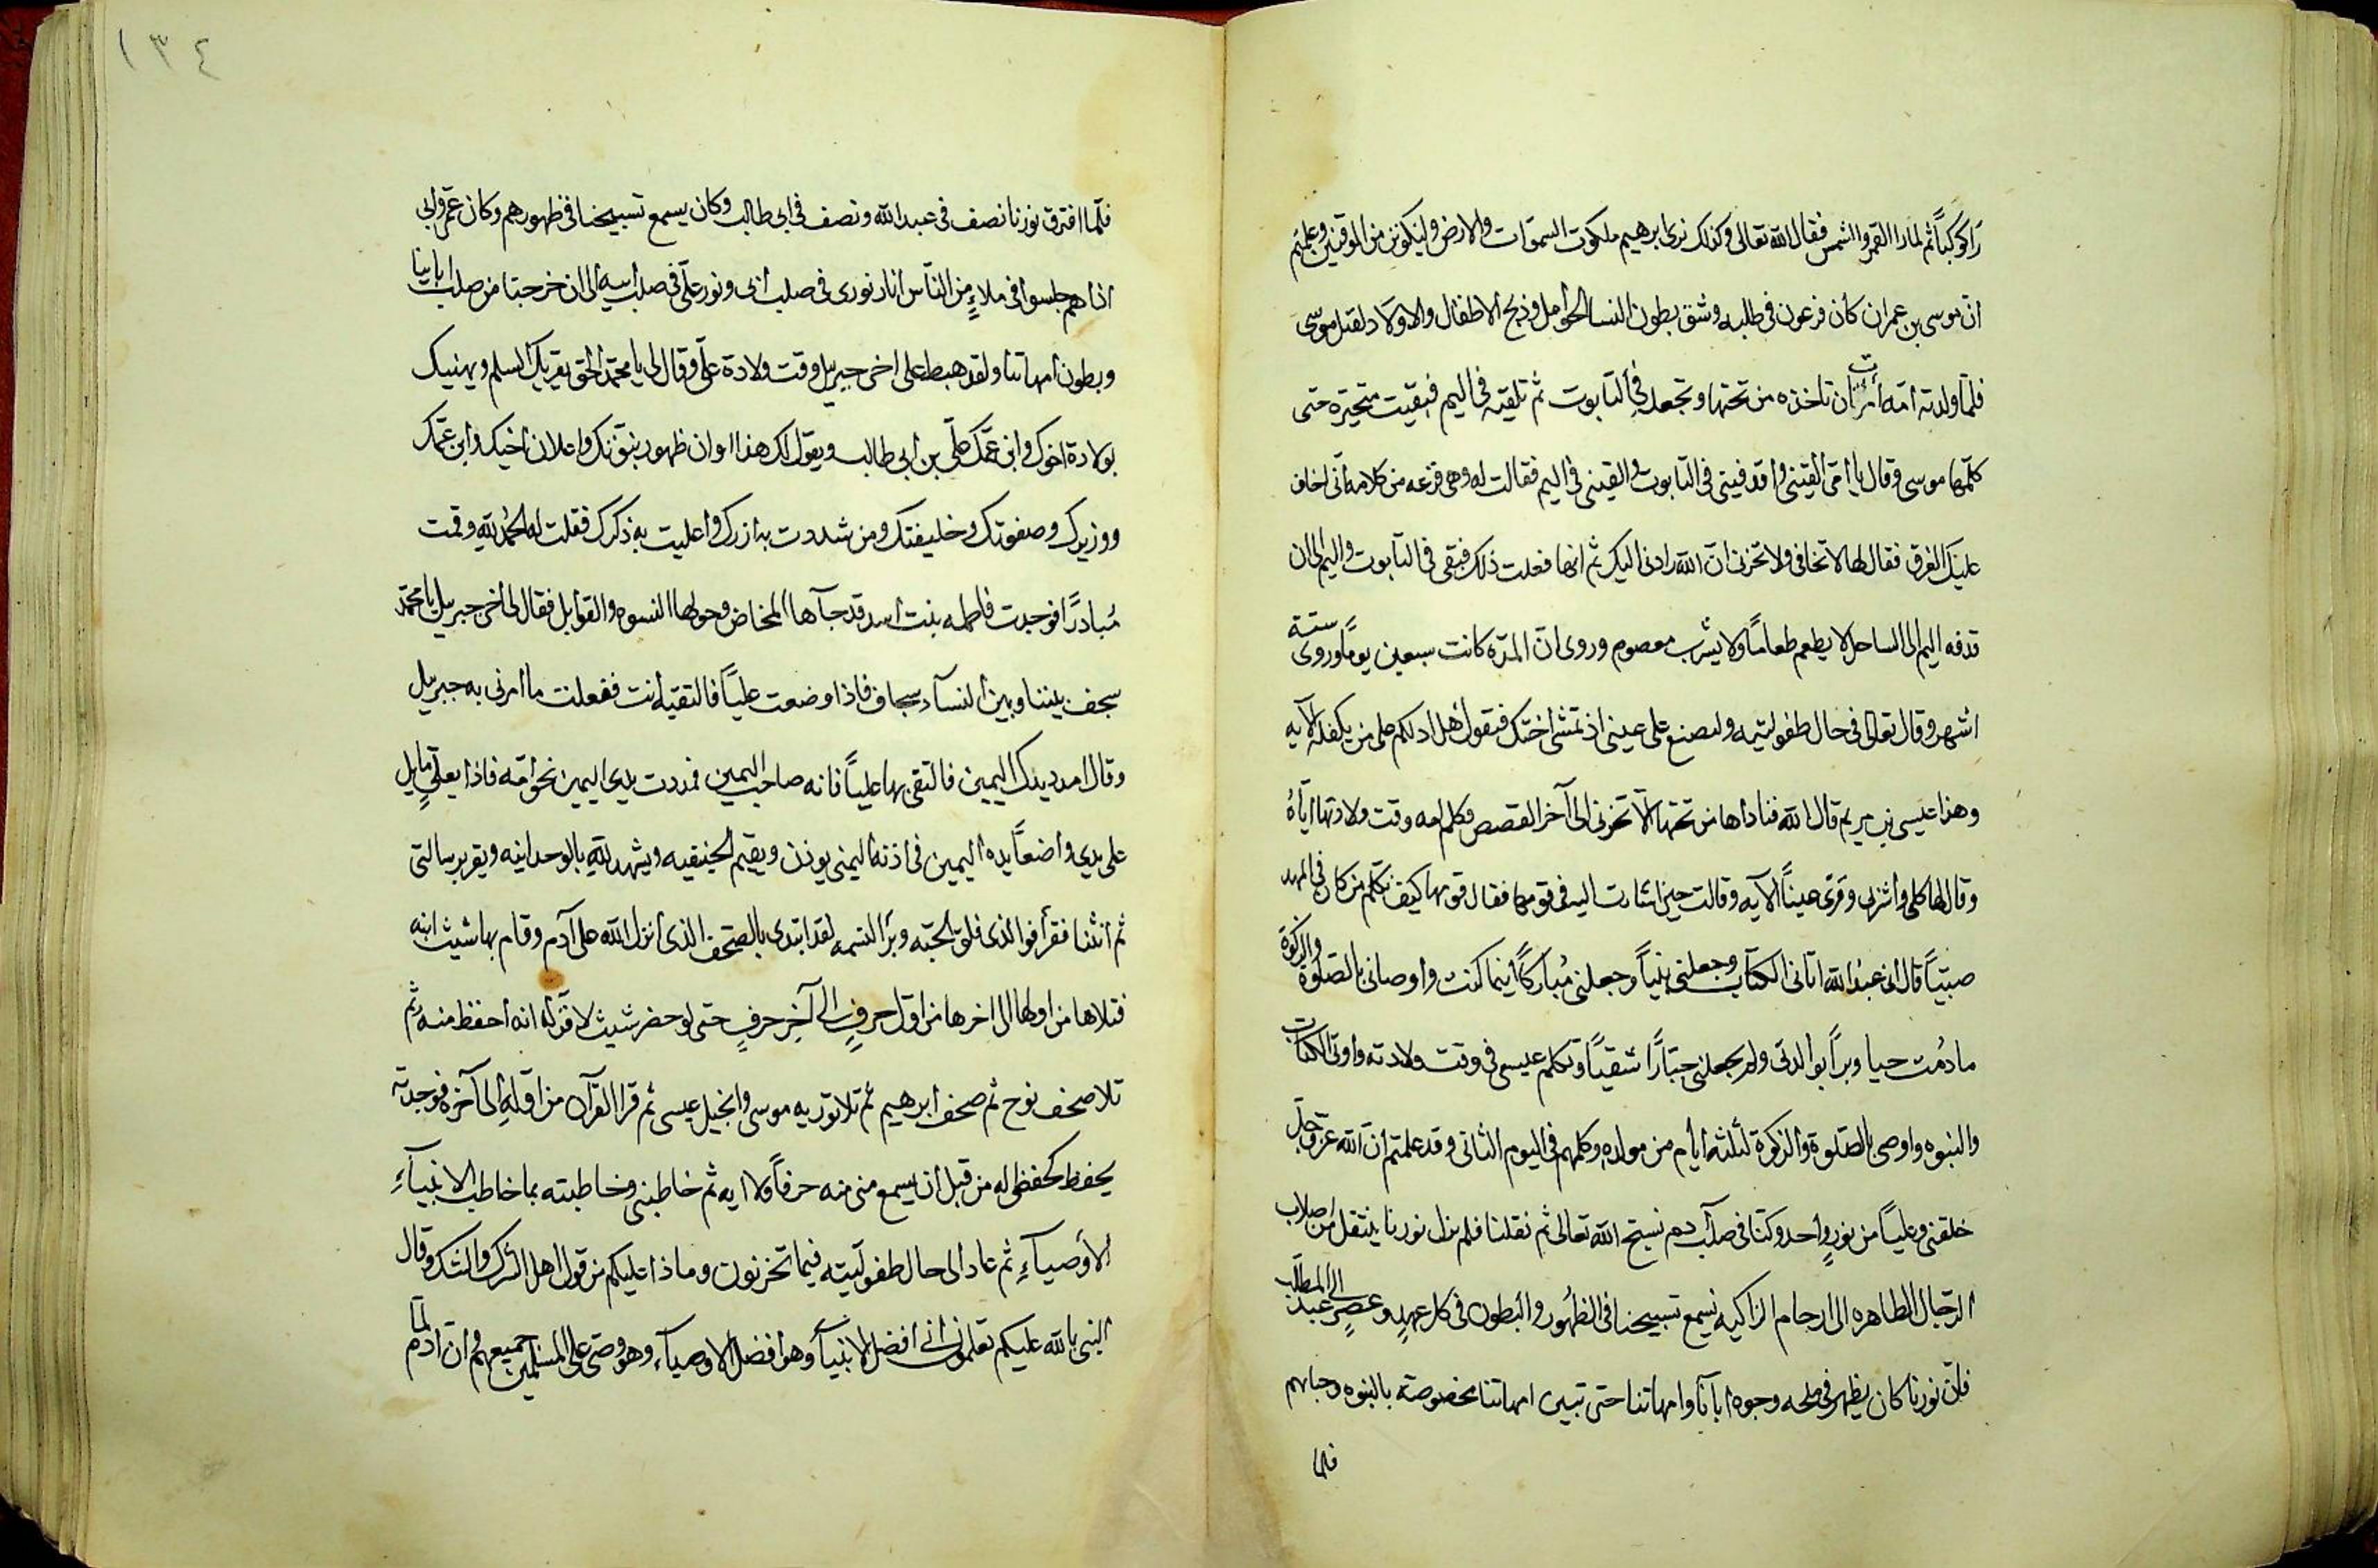 رَاكوكباً ثم لما را القمر والشمس فقال الله تعالى وكذلك نرى ابرهيم ملكوت السموات والارض وليكونن من الموقنين وعلمتم
ان موسى بن عمران كان فرعون فى طلبه وشق بطون النسا الحوامل وذبح الاطفال والاولاد لقتل موسى
فلما ولدته امه امرت ان تاخذه من تحتها وتجعله فى التابوت ثم تلقيه فى اليم فبقيت متحيره حتى
كلمها موسى وقال يا امى القينى واقدفينى فى التابوت والقينى فى اليم فقالت له وهى فزعه من كلامه انى اخاف
عليك الغرق فقال لها لا تخافى ولا تحزنى ان الله رادنى اليك ثم انها فعلت ذلك فبقى فى التابوت واليم الى ان
قدفه اليم الى الساحل لا يطعم طعاماً ولا يشرب معصوم وروى ان المدة كانت سبعين يوماً وروى ستة
اشهر وقال تعالى فى حال طفوليته ولتصنع على عينى اذ تمشى اختك فتقول هل ادلكم على من يكفله الآيه
وهذا عيسى بن مريم قال الله فناداها من تحتها الّا تحزنى الى آخر القصص فكلم امه وقت ولادتها اياهُ
وقال لها كلى واشربى وقرى عيناً الآيه وقالت حين اشارت اليه فى قومها فقال قومها كيف نكلم من كان فى المهد
صبيّاً قال انى عبدُ الله اتانى الكتاب وجعلنى نبيّاً وجعلنى مُباركاً اينما كنت واوصانى بالصلوة والزكوة
ما دُمت حيا وبراً بوالدتى ولم يجعلنى جبّاراً شقيّاً وتكلم عيسى فى وقت ولادته واوتى الكتاب
والنبوه واوصى بالصلوة والزكوة لثلثه ايام من مولده وكلمهم فى اليوم الثانى وقد علمتم ان الله عز وجل
خلقنى وعليّاً من نورٍ واحد وكنا فى صلب آدم نسبح الله تعالى ثم نقلنا فلم يزل نورنا ينتقل من اصلاب
الرجال الطاهره الى ارحام الزاكيه نسمع تسبيحنا فى الظُهُور والبطون فى كل عهدٍ وعصرٍ الى عبد المطلب
فان نورنا كان يظهر فى ملحه وجوه ابآنا وامهاتنا حتى تبين امهاتنا مخصوصة بالنبوه وجباههم
فلما
١٣٤
فلما افترق نورنا نصف فى عبد الله ونصف فى ابى طالب وكان يسمع تسبيحنا فى ظهورهم وكان عمى وابى
اذا هم جلسوا فى ملاءٍ من الناس انار نورى فى صلب ابى ونور على فى صلب ابيه الى ان خرجنا من صلب ابابينا
وبطون امهاتنا ولقد هبط على اخى جبريل وقت ولادة على وقال لى يا محمد الحق يقريك السلم ويهنيك
بولادة اخوك وابن عمّك على بن ابى طالب ويقول لك هذا اوان ظهور نبوتك واعلان اخيك وابن عمّك
ووزيرك وصفوتك وخليفتك ومن شددت به ازرك واعليت به ذكرك فقلت له الحمُد للهِ وقمت
مُبادرًا فوجدت فاطمه بنت اسد قد جآها المخاض وحولها النسوه والقوابل فقال لى اخى جبريل يا محمّد
سجف بيننا وبين النسآء سجاف فاذا وضعت عليّاً فالتقيه انت ففعلت ما امرنى به جبريل
وقال امدد يدك اليمين فالتقى بها عليّاً فانه صاحب اليمين فمددت يدى اليمين نحو امّه فاذا بعلىٍّ مايل
على يدى واضعاً يده اليمين فى اذنه اليمنى يوذن ويقيم الحنيفيه ويشهد للهِ بالوحدانيه ويقر برسالتى
ثم انثنا فقرأ فوالذى فلق الحبّه وبرا النسمه لقد ابتدى بالصحف الذى انزل الله على آدم وقام بها شيث ابنه
فتلاها من اولها الى اخرها من اول حرفٍ الى آخر حرفٍ حتى لو حضر شيث لاقر له انه احفظ منه ثم
تلا صحف نوح ثم صحف ابرهيم ثم تلا توريه موسى وانجيل عيسى ثم قرا القرآن من اوله الى آخره فوجدته
يحفظ كحفظى له من قبل ان يسمع منى منه حرفاً ولا ايه ثم خاطبنى وخاطبته بما خاطب الانبيآءِ
الأوصيآءِ ثم عاد الى حال طفولَيته فيما تحزنون وماذا عليكم من قول اهل الشرك والشك وقال
النبى بالله عليكم تعلمون انى افضل الانبيآء وهو افضل الاوصيآء وهو وصى على المسلمين جميعهم وان ادم لما